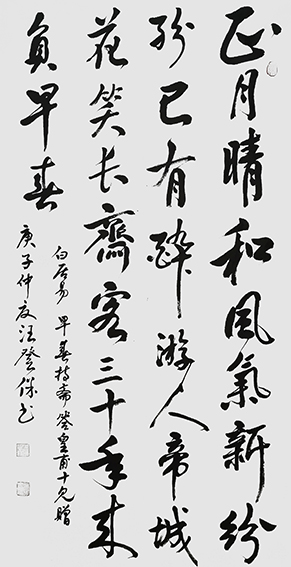 正月晴和風氣新紛
紛已有醉游人帝城
花笑长齋客三十年来
負早春
白居易 早春持斋答皇甫十见贈
庚子仲夏汪登保书